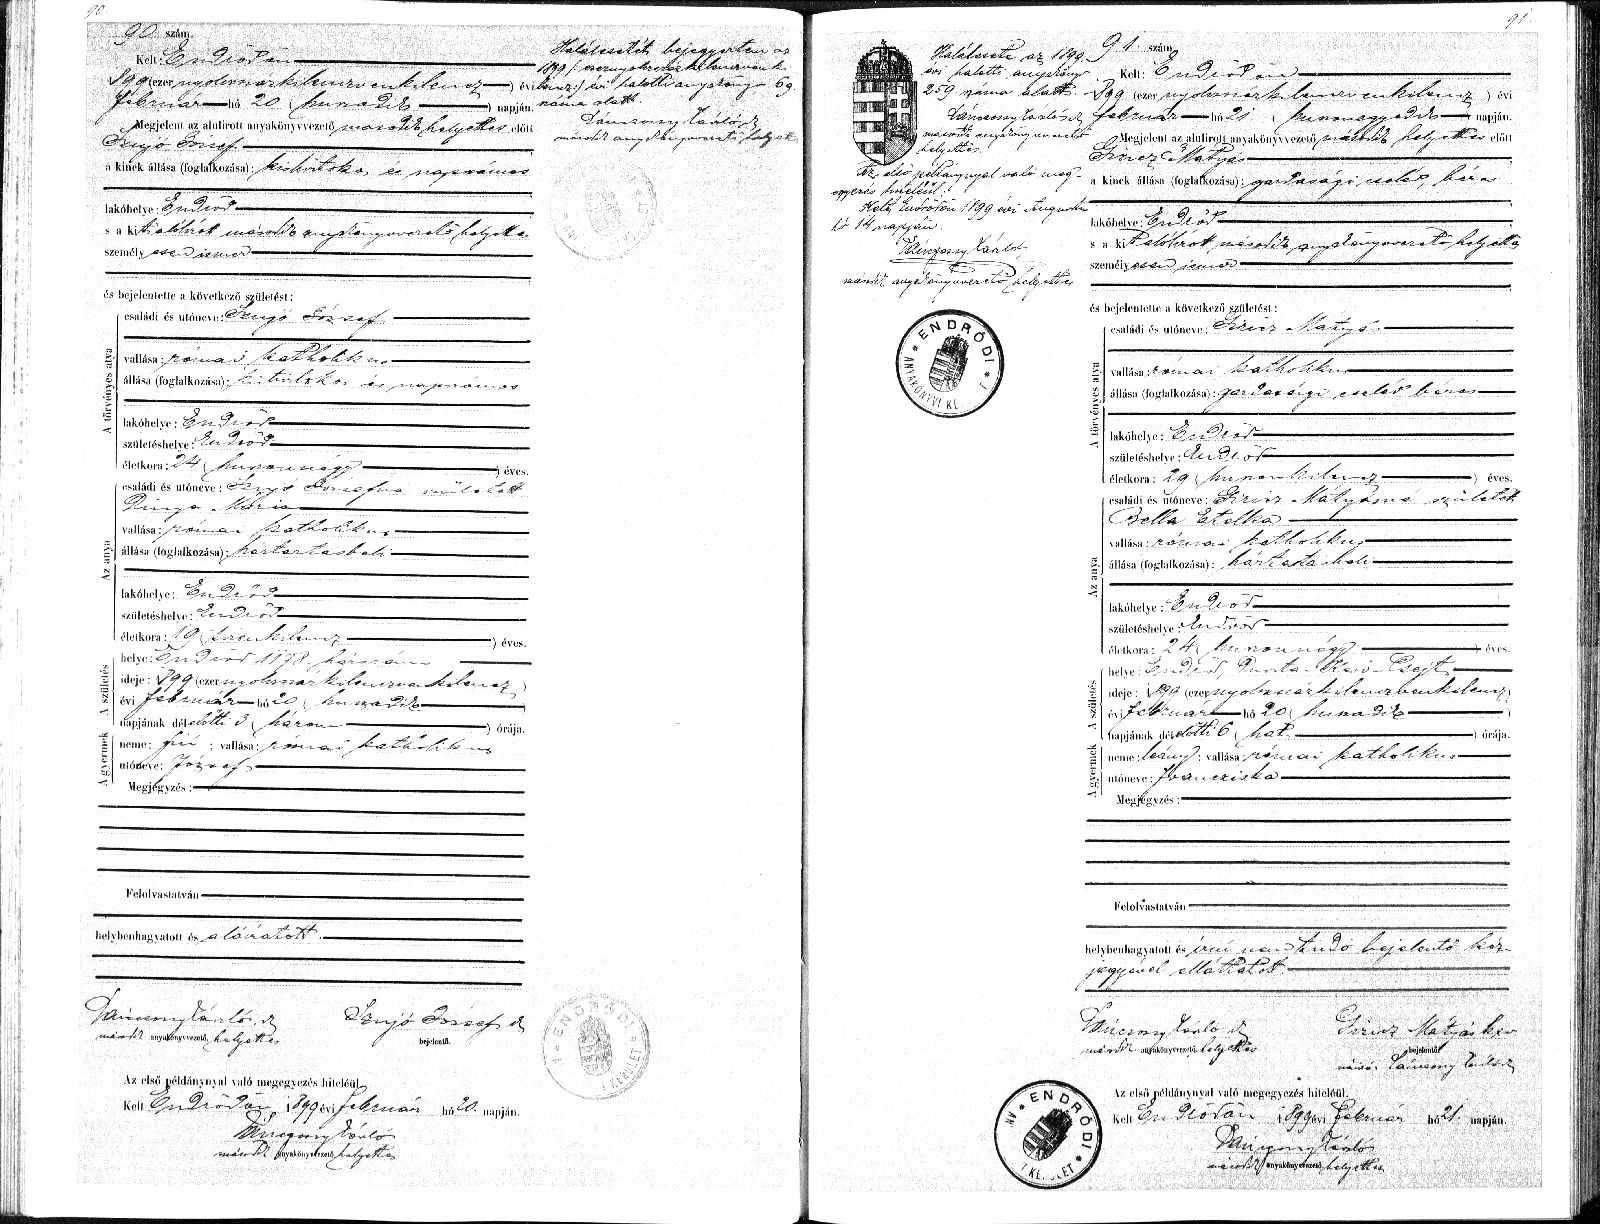 90
90. szám.
Kelt: Endrődön
899 (ezer nyolczszázkilenczvenkilencz) évi
február hó 20 (huszadik) napján.
Megjelent az alulirott anyakönyvvezető második helyettes előtt
József
a kinek állása (foglalkozása): kisbirtokos és napszámos
lakóhelye: Endrőd
s a kit alólirott második anyakönyvvezető helyettes
személyesen ismer
és bejelentette a következő születést:
A törvényes atya
családi és utóneve: József
vallása: római katholikus
állása (foglalkozása): kisbirtokos és napszámos
lakóhelye: Endrőd
születéshelye: Endrőd
életkora: 24 (huszonnégy) éves.
Az anya
családi és utóneve: Józsefné született
Mária
vallása: római katholikus
állása (foglalkozása): háztartásbeli
lakóhelye: Endrőd
születéshelye: Endrőd
életkora: 19 (tizenkilencz) éves.
A születés
helye: Endrőd 1178 házszám
ideje: 899 (ezer nyolczszázkilenczvenkilencz)
évi február hó 20 (huszadik)
napjának délelőtti 3 (három) órája.
A gyermek
neme: fiú; vallása: római katholikus
utóneve: József
Megjegyzés:
Felolvastatván
helybenhagyatott és aláiratott.
József
második anyakönyvvezető helyettes
bejelentő.
Az első példánynyal való megegyezés hiteléül.
Kelt Endrődön, 1899 évi február hó 20. napján.
második anyakönyvvezető helyettes
Halálesetét bejegyeztem az
1899 (ezernyolczszázkilenczvenki-
lencz) évi halotti anyakönyv 69.
száma alatt.
második anyakönyvvezető helyettes
ENDRŐDI
I KERÜLET
91.
91. szám
Kelt: Endrődön
899 (ezer nyolczszázkilenczvenkilencz) évi
február hó 21 (huszonegyedik) napján.
Megjelent az alulirott anyakönyvvezető második helyettes előtt
Giricz Mátyás
a kinek állása (foglalkozása): gazdasági cseléd, béres
lakóhelye: Endrőd
s a kit alólirott második anyakönyvvezető helyettes
személyesen ismer
és bejelentette a következő születést:
A törvényes atya
családi és utóneve: Giricz Mátyás
vallása: római katholikus
állása (foglalkozása): gazdasági cseléd béres
lakóhelye: Endrőd
születéshelye: Endrőd
életkora: 29 (huszonkilencz) éves.
Az anya
családi és utóneve: Giricz Mátyásné született
Bella Etelka
vallása: római katholikus
állása (foglalkozása): háztartásbeli
lakóhelye: Endrőd
születéshelye: Endrőd
életkora: 24 (huszonnégy) éves.
A születés
helye: Endrőd, Puszta Csejt
ideje: 1899 (ezer nyolczszázkilenczvenkilencz)
évi február hó 20 (huszadik)
napjának délelőtti 6 (hat) órája.
A gyermek
neme: leány; vallása: római katholikus
utóneve: Francziska
Megjegyzés:
Felolvastatván
helybenhagyatott és irni nem tudó bejelentő kéz-
jegyével elláttatott.
Giricz Mátyás
második anyakönyvvezető helyettes
bejelentő
Az első példánynyal való megegyezés hiteléül.
Kelt Endrődön 1899 évi február hó 21. napján.
második anyakönyvvezető helyettes
Halálesete az 1899.
évi halotti anyakönyv
259 száma alatt.
második anyakönyvvezető
helyettes
Az első példánynyal való meg-
egyezés hiteléül!
Kelt Endrődön 1899 évi Augusztus
hó 14 napján.
második anyakönyvvezető helyettes
ENDRŐDI
ANYAKÖNYVI KE
ENDRŐDI